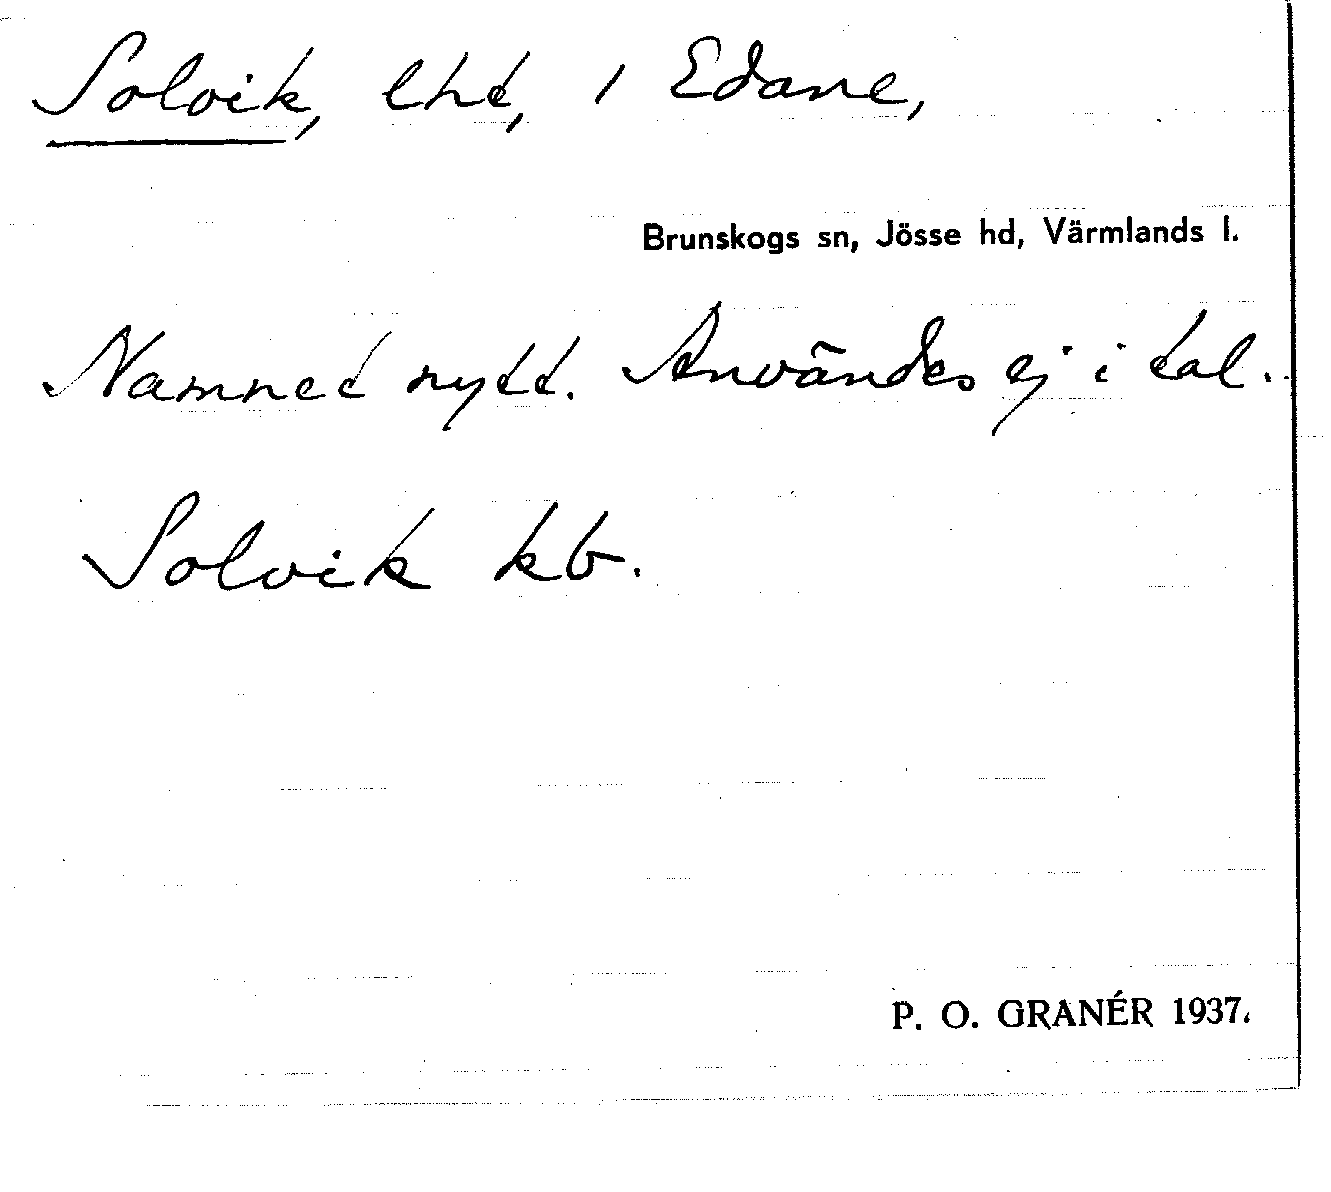 Solvik, lht, i Edane,
Brunskogs sn, Jösse hd, Värmlands l.
Namnet nytt. Användes ej i tal.
Solvik kb.
P. O. GRANÉR 1937.